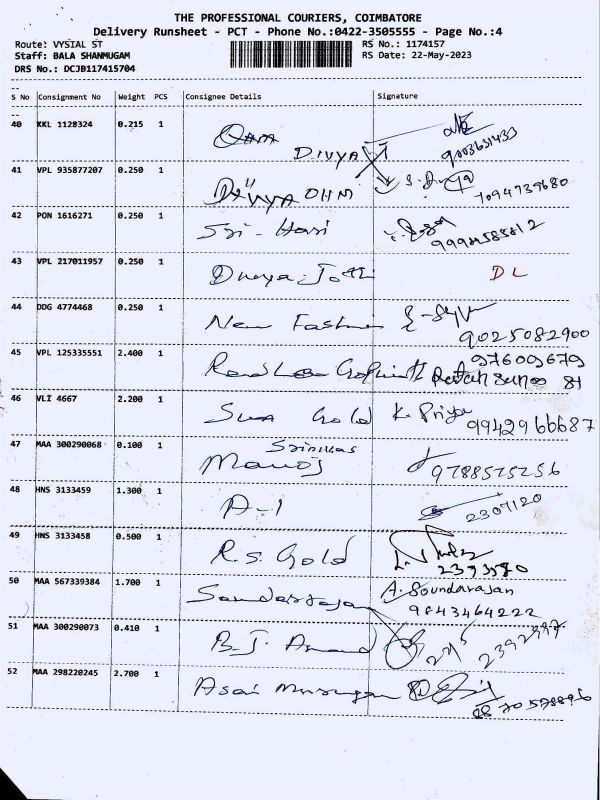 THE PROFESSIONAL COURIERS, COIMBATORE
Delivery Runsheet - PCT - Phone No.:0422-3505555 - Page No.:4
Route: VYSIAL ST RS No.: 1174157
Staff: BALA SHANMUGAM RS Date: 22-May-2023
DRS No.: DCJB117415704
S No Consignment No Weight PCS Consignee Details Signature
40 KKL 1128324 0.215 1
DIVYA
41 VPL 935877207 0.250 1 DIVYA OHM
42 PON 1616271 0.250 1 Sri-Hari
43 VPL 217011957 0.250 1 Divya Jothi DL
44 DDG 4774468 0.250 1 New Fashion 9025082900
45 VPL 125335551 2.400 1 976009679
81
46 VLI 4667 2.200 1 Sun Gold K. Priya 9942966687
47 MAA 300290068 0.100 1 Srinivas
Manoj 9788525256
48 HNS 3133459 1.300 1 A-1 2307120
49 HNS 3133458 0.500 1 R.S. Gold
50 MAA 567339384 1.700 1 Soundarrajan A. Soundarajan
9843464222
51 MAA 300290073 0.410 1 B.J. Anand
52 MAA 298220245 2.700 1 Asai Murugan